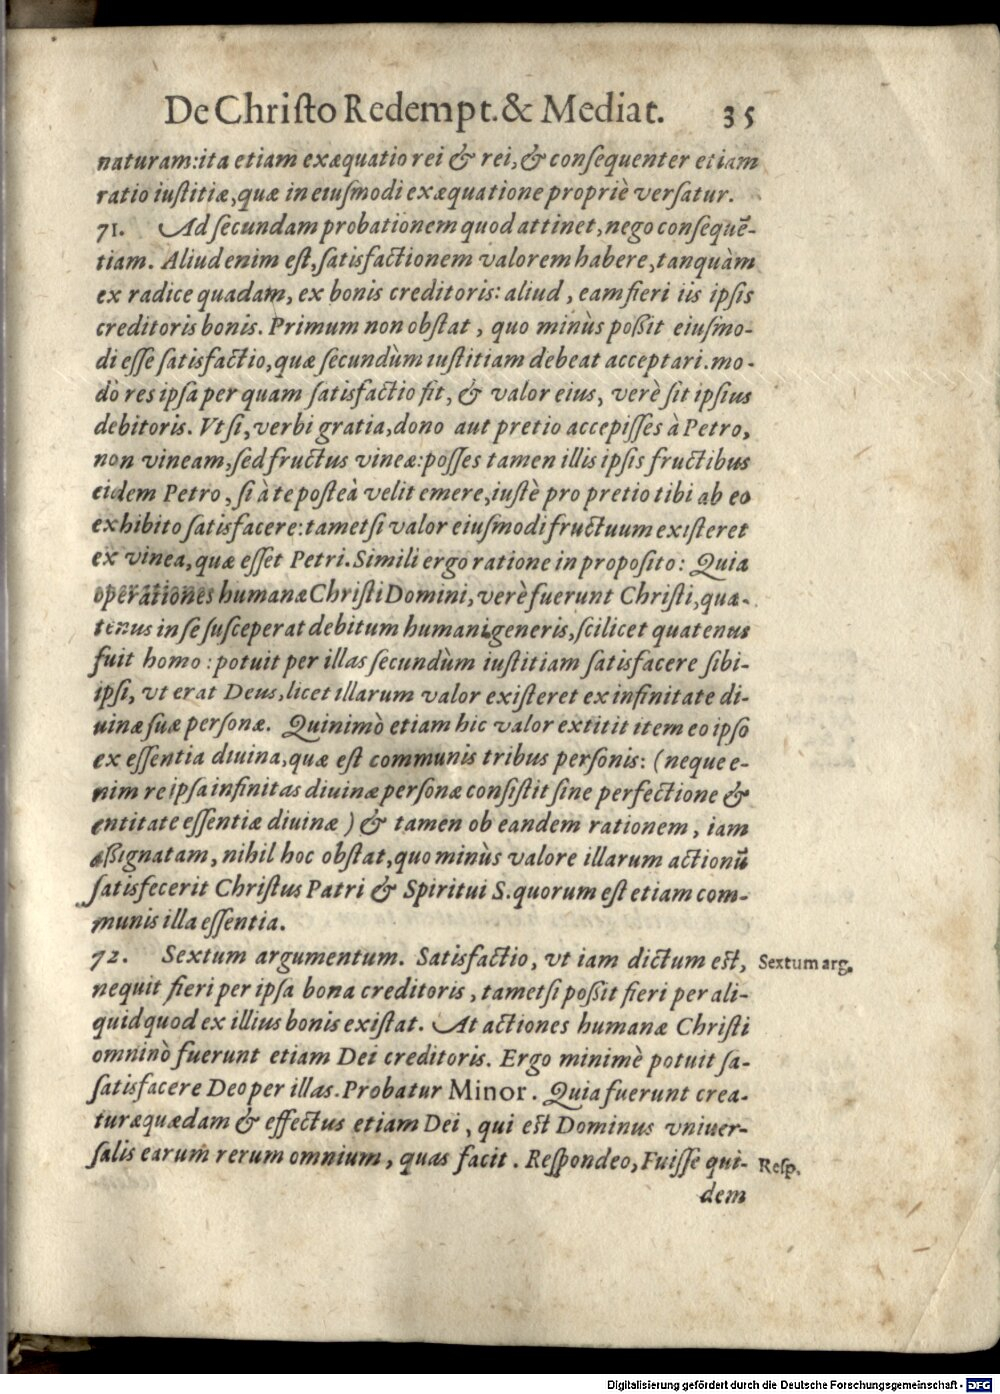 De Christo Redempt. & Mediat. 35
naturam: ita etiam exæquatio rei & rei, & consequenter etiam
ratio iustitiæ, quæ in eiusmodi exæquatione propriè versatur.
71. Ad secundam probationem quod attinet, nego consequē-
tiam. Aliud enim est, satisfactionem valorem habere, tanquàm
ex radice quadam, ex bonis creditoris: aliud, eam fieri iis ipsis
creditoris bonis. Primum non obstat, quo minùs poßit eiusmo-
di esse satisfactio, quæ secundùm iustitiam debeat acceptari. mo-
dò res ipsa per quam satisfactio fit, & valor eius, verè sit ipsius
debitoris. Vt si, verbi gratia, dono aut pretio accepisses à Petro,
non vineam, sed fructus vineæ: posses tamen illis ipsis fructibus
eidem Petro, si à te posteà velit emere, iustè pro pretio tibi ab eo
exhibito satisfacere: tametsi valor eiusmodi fructuum existeret
ex vinea, quæ esset Petri. Simili ergo ratione in proposito: Quia
operationes humanæ Christi Domini, verè fuerunt Christi, qua-
tenus in se susceperat debitum humani generis, scilicet quatenus
fuit homo: potuit per illas secundùm iustitiam satisfacere sibi-
ipsi, vt erat Deus, licet illarum valor existeret ex infinitate di-
uinæ suæ personæ. Quinimò etiam hic valor extitit item eo ipso
ex essentia diuina, quæ est communis tribus personis: (neque e-
nim re ipsa infinitas diuinæ personæ consistit sine perfectione &
entitate essentiæ diuinæ) & tamen ob eandem rationem, iam
aßignatam, nihil hoc obstat, quo minùs valore illarum actionū
satisfecerit Christus Patri & Spiritui S. quorum est etiam com-
munis illa essentia.
72. Sextum argumentum. Satisfactio, vt iam dictum est, Sextum arg.
nequit fieri per ipsa bona creditoris, tametsi poßit fieri per ali-
quid quod ex illius bonis existat. At actiones humanæ Christi
omninò fuerunt etiam Dei creditoris. Ergo minimè potuit sa-
satisfacere Deo per illas. Probatur Minor. Quia fuerunt crea-
turæ quædam & effectus etiam Dei, qui est Dominus vniuer-
salis earum rerum omnium, quas facit. Respondeo, Fuisse qui- Resp.
dem
Digitalisierung gefördert durch die Deutsche Forschungsgemeinschaft - DFG